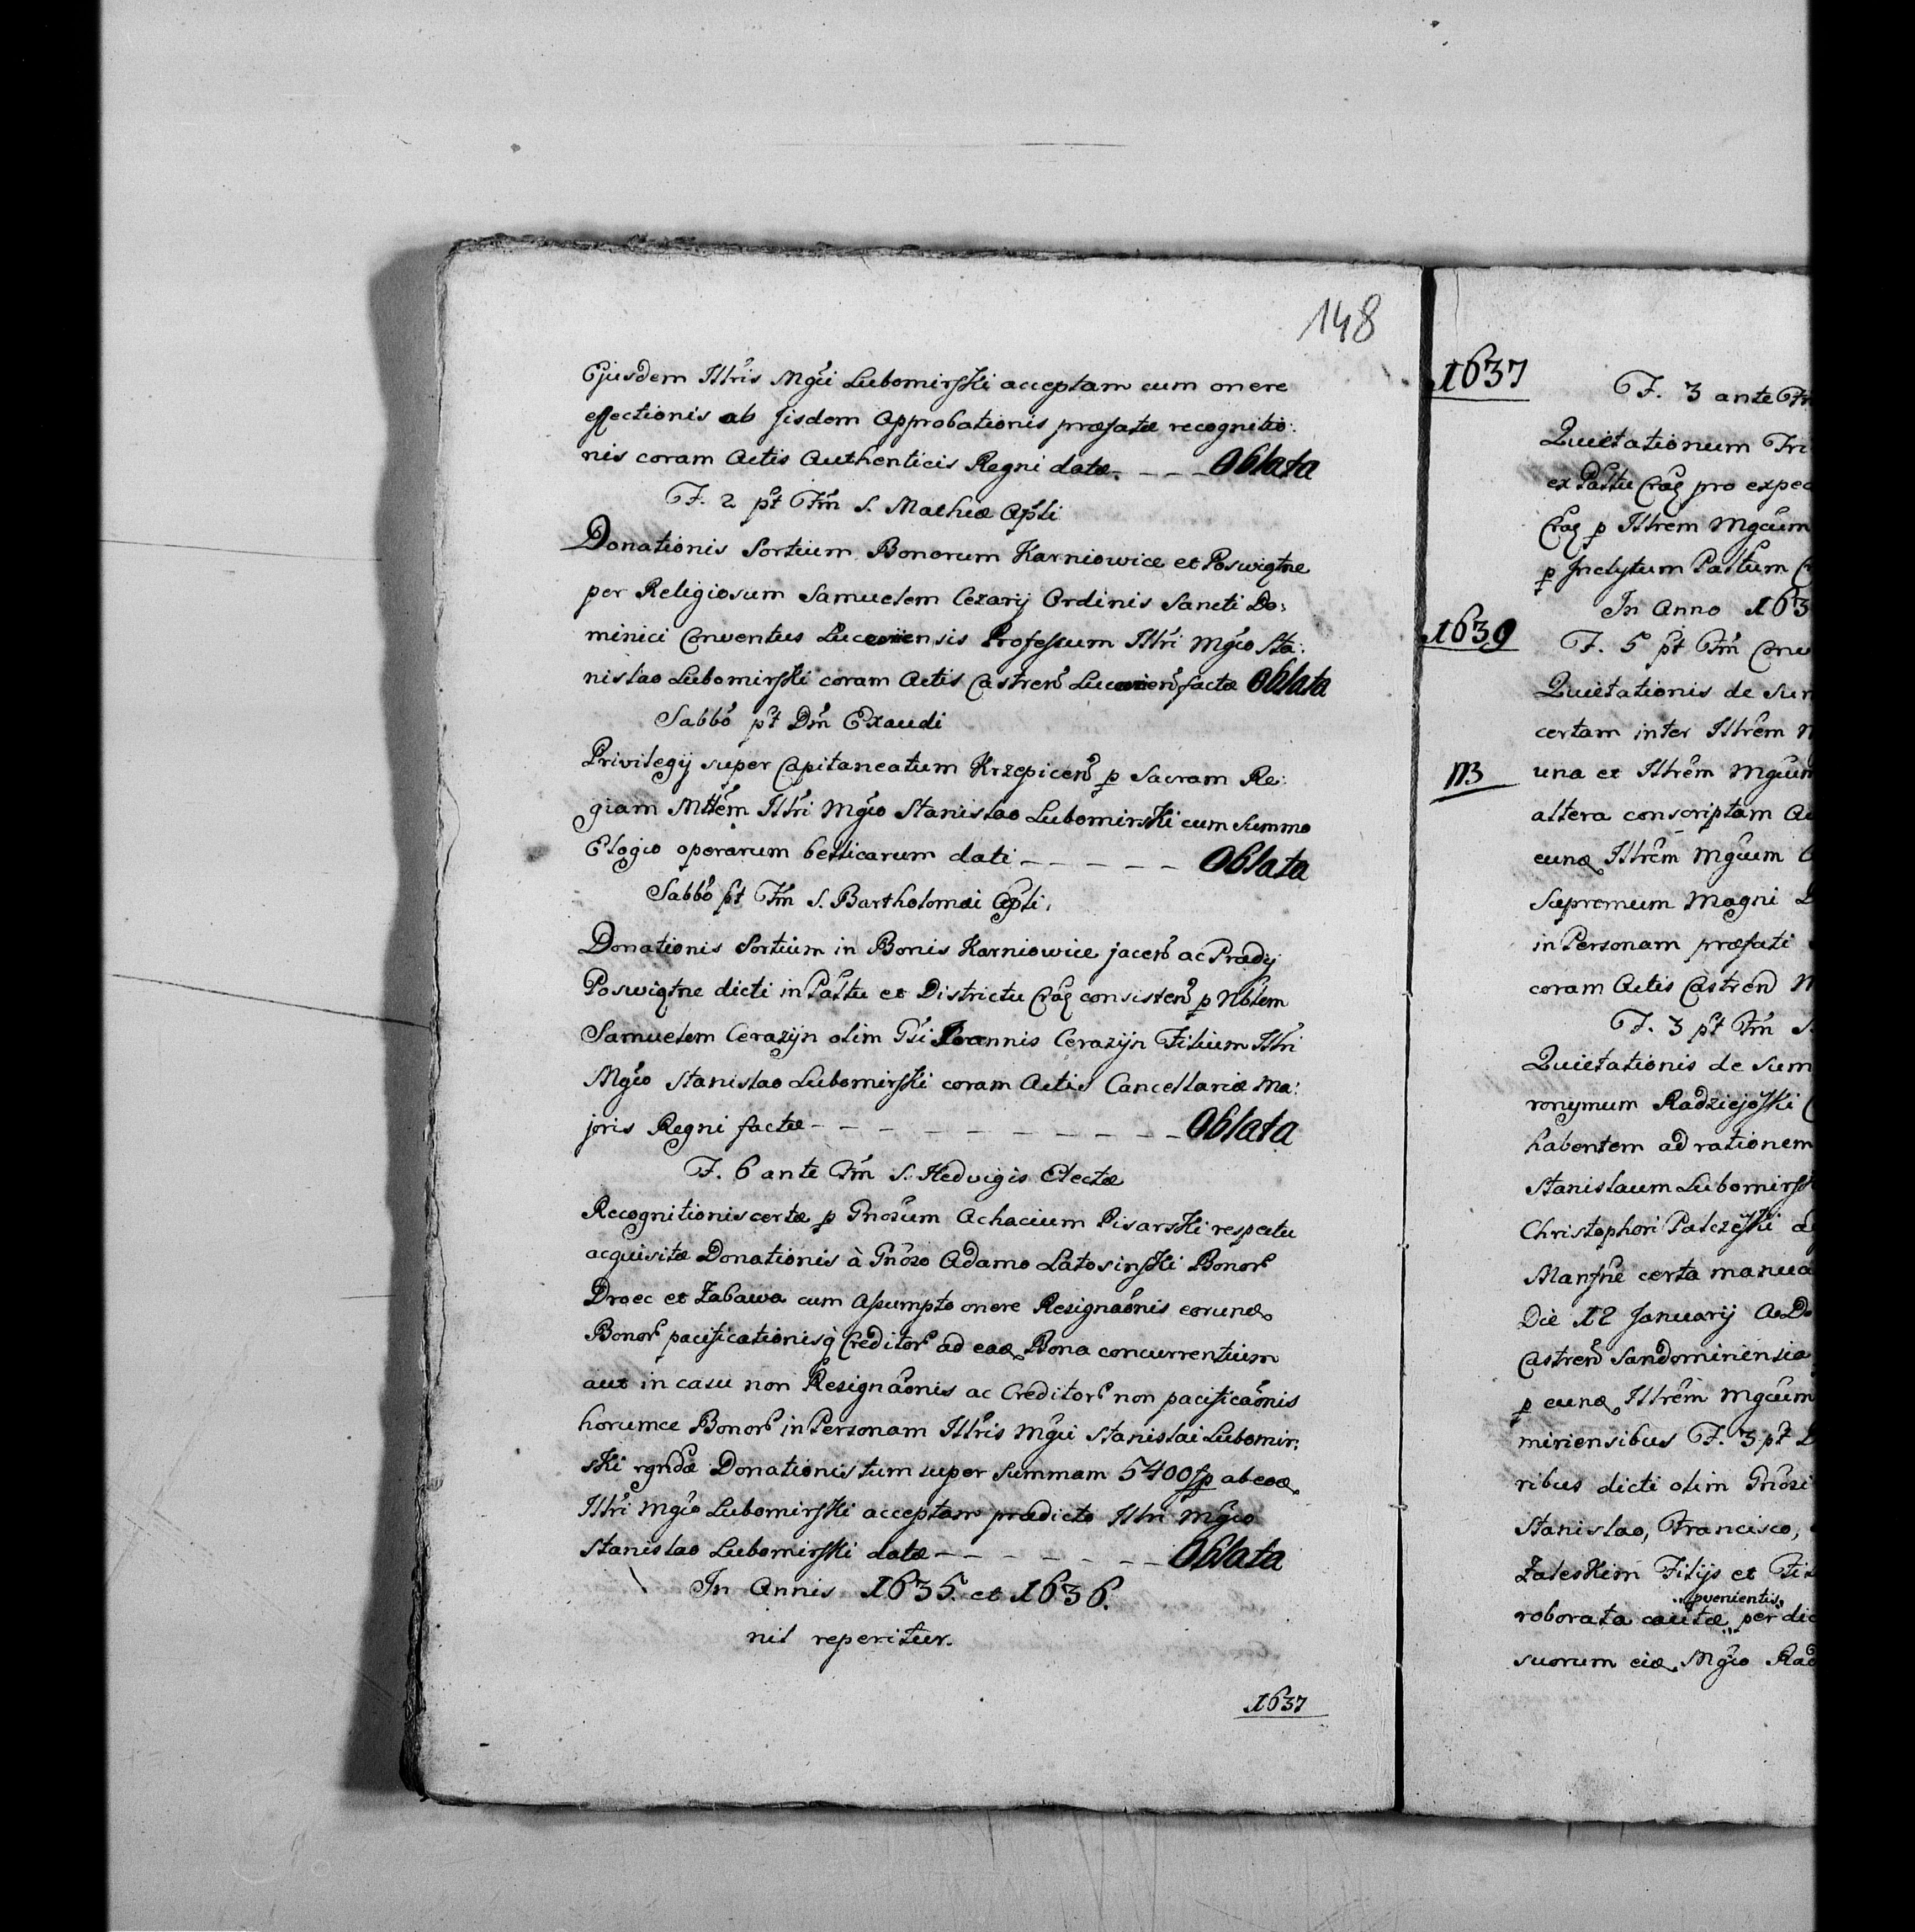 148
Ejusdem Illris Mgci Lubomirski acceptam cum onere
effectionis ab iisdem Approbationis præfatæ recognitio:
nis coram Actis Authenticis Regni datæ. - - - Oblata
F. 2 pt Fm S. Mathiæ Apli
Donationis Sortium Bonorum Karniowice et Poswiętne
per Religiosum Samuelem Cezarij Ordinis Sancti Do:
minici Conventus Luceoriensis Professum Illri Mgco Sta:
nislao Lubomirski coram Actis Castren Luceorien factæ Oblata
Sabbo pt Dm Exaudi
Privilegij super Capitaneatum Krzepicen p Sacram Re:
giam Mttem Illri Mgco Stanislao Lubomirski cum summo
Elogio operarum bellicarum dati - - - - - Oblata
Sabbo pt Fm S. Bartholomæi Apli.
Donationis Sortium in Bonis Karniowice jacen ac Prædij
Poswiętne dicti in Pâltu et Districtu Crac consisten p Nblem
Samuelem Cerazyn olim Gsi Joannis Cerazyn Filium Illri
Mgco Stanislao Lubomirski coram Actis Cancellariæ Ma:
joris Regni factæ - - - - - - - - - - - Oblata
F. 6 ante Fm S. Hedvigis Electæ
Recognitionis certæ p Gnosum Achacium Pisarski respectu
acquisitæ Donationis à Gnoso Adamo Latosinski Bonor
Droec et Zabawa cum Assumpto onere Resignaonis eorund.
Bonor pacificationisq Creditor ad ead. Bona concurrentium
aut in casu non Resignaonis ac Creditor non pacificaonis
horumce Bonor in Personam Illris Mgci Stanislai Lubomir:
ski rgndæ Donationis tum super summam 5400 fp ab eod.
Illri Mgco Lubomirski acceptam prædicto Illri Mgco
Stanislao Lubomirski datæ - - - - - - - Oblata
In Annis 1635. et 1636.
nil reperitur.
1637
1637
F. 3 ante F
Quietationum Tri
ex Paltu Crac pro exped
Crac p Illrem Mgcum
p Inclytum Paltum C
In Anno 163
1639
F. 5 pt Fm Conv
Quietationis de Sum
certam inter Illrem M
NB
una et Illrem Mgcum
altera conscriptam
eund Illrem Mgcum
Supremum Magni
in Personam præfati
coram Actis Castren
F. 3 pt Fm S
Quietationis de Sum
ronymum Radziejoski
habentem ad rationem
Stanislaum Lubomirsk
Christophori Palczeski
certa manua
Die 12 Januarij
Castren Sandomiriensia
p eund. Illrem Mgcum
miriensibus F. 3 pt
ribus dicti olim Gnosi
Stanislao, Francisco,
Zaleskim Filijs et Fi
pvenientis
roborata cautæ per dic
suorum eid. Mgco Rad